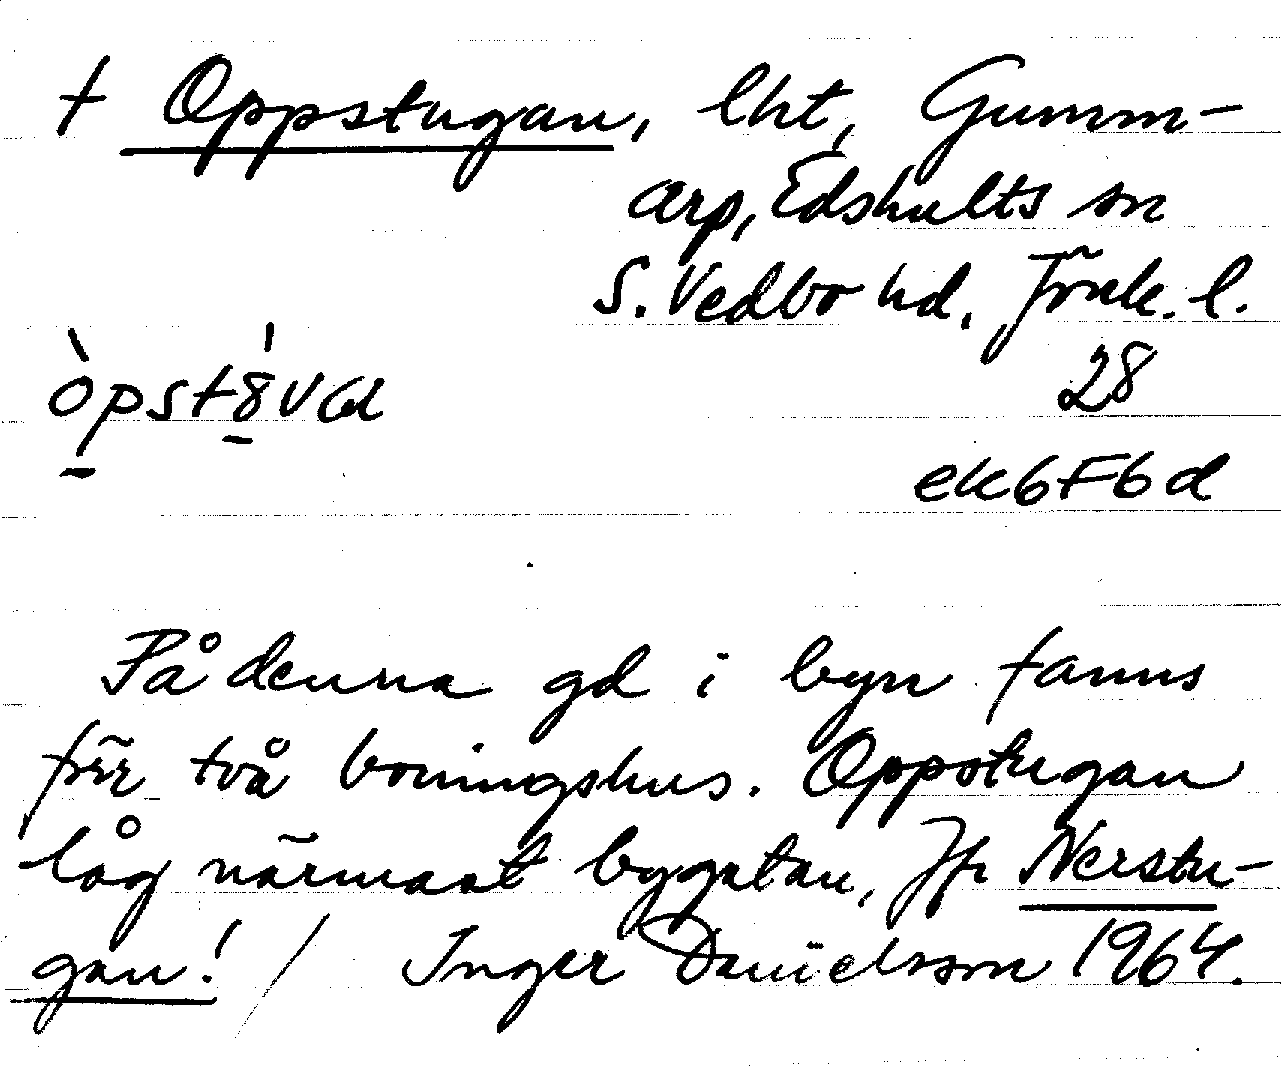 † Oppstugan, lht, Gumm-
arp, Edshults sn
S. Vedbo hd. Jönk. l.
28
ek6F6d
På denna gd i byn fanns
förr två boningshus. Oppstugan
låg närmast bygatan, Jfr Nerstu-
gan! / Inger Danielsson 1964.